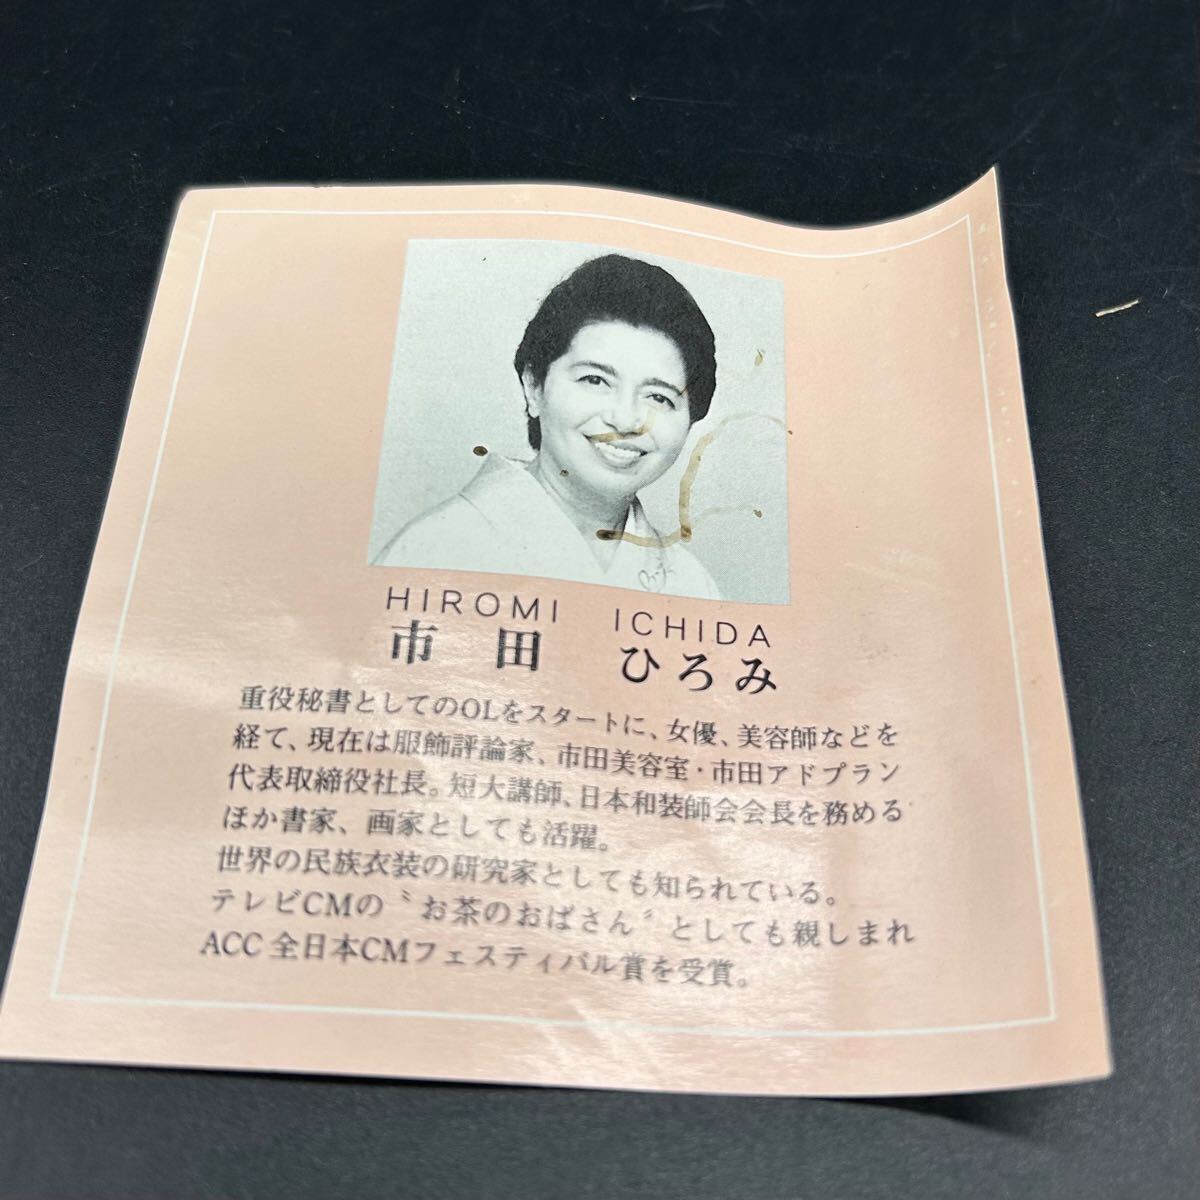 HIROMI ICHIDA
市田 ひろみ
重役秘書としてのOLをスタートに、女優、美容師などを
経て、現在は服飾評論家、市田美容室・市田アドプラン
代表取締役社長。短大講師、日本和装師会会長を務める
ほか書家、画家としても活躍。
世界の民族衣装の研究家としても知られている。
テレビCMの〝お茶のおばさん〞としても親しまれ
ACC全日本CMフェスティバル賞を受賞。